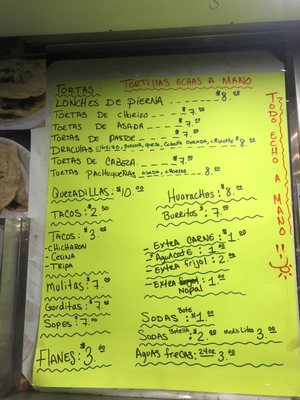 TORTILLAS ECHAS A MANO
TORTAS:
LONCHES DE PIERNA $8.00
TORTAS DE CHORIZO $7.00
TORTAS DE ASADA $7.00
TORTAS DE PASTOR $7.00
DRACULAS CHORIZO, PIERNA, QUESO, CEBOLLA DORADA, CHIPOTLE $8.00
TORTAS DE CABEZA $7.00
TORTAS PACHUQUEÑAS ASADA, CHORIZO 8.00
QUEZADILLAS: $10.00
HUARACHOS: $8.00
TACOS: $2.50
BURRITOS: $7.00
TACOS: $3.00
- CHICHARON
- CESINA
- TRIPA
- EXTRA CARNE: $1.00
* AGUACATE: $1.00
- EXTRA FRIJOL: 2.00
- EXTRA NOPAL: $1.00
MULITAS: $7.00
GORDITAS: $7.00
SOPES: $7.00
SODAS Bote: $1.00
SODAS Botella: $2.00 Medio Litro 3.00
FLANES: $3.00
AGUAS FRECAS: 24oz 3.00
TODO ECHO A MANO!!